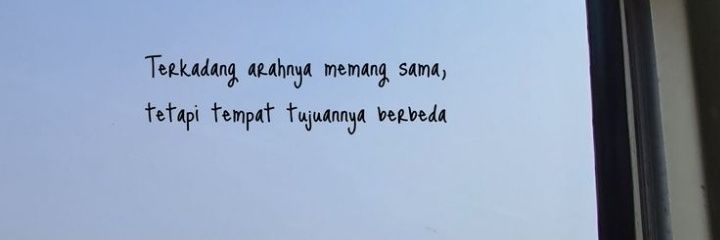 Terkadang arahnya memang sama,
tetapi tempat tujuannya berbeda